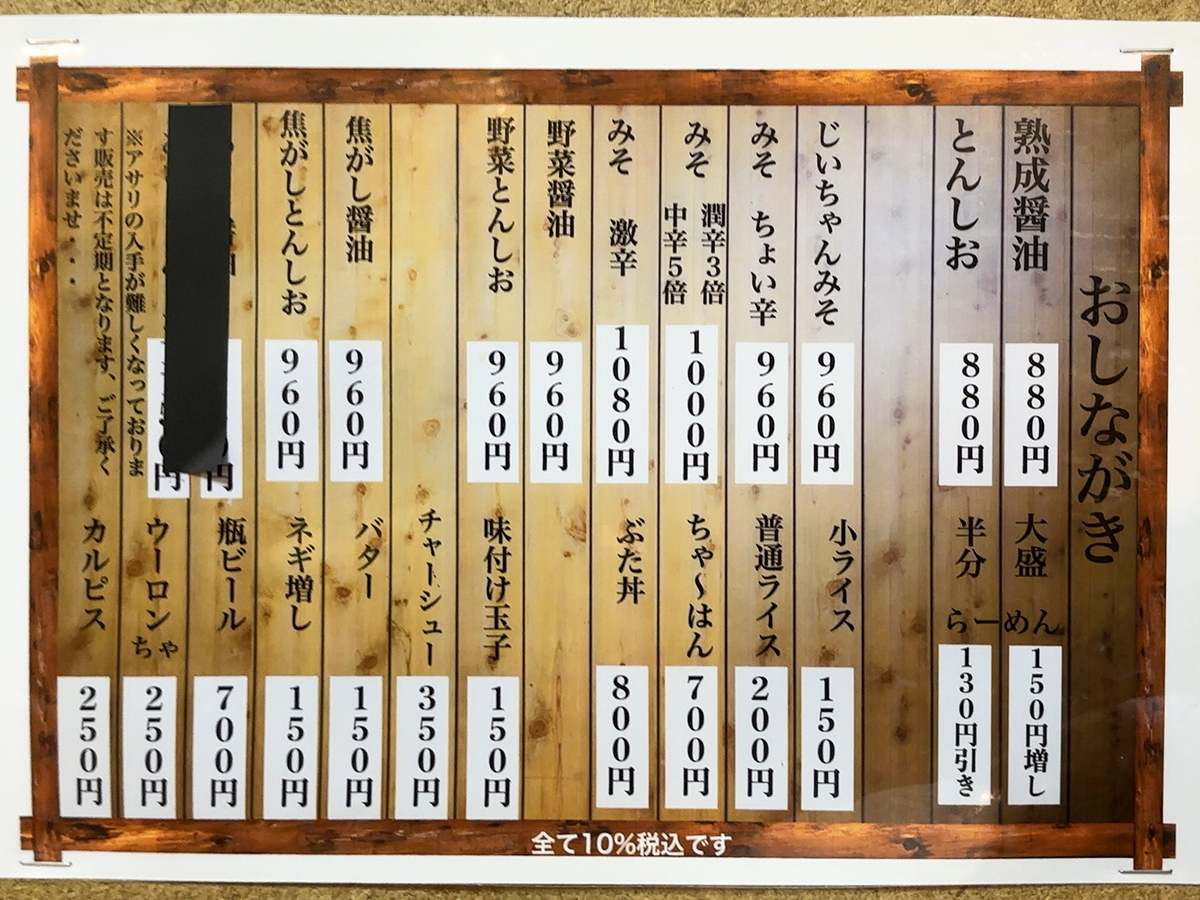 おしながき
熟成醤油 880円
とんしお 880円
じいちゃんみそ 960円
みそ ちょい辛 960円
みそ 潤辛3倍 中辛5倍 1000円
みそ 激辛 1080円
野菜醤油 960円
野菜とんしお 960円
焦がし醤油 960円
焦がしとんしお 960円
円
円
※アサリの入手が難しくなっておりま
す販売は不定期となります、ご了承く
ださいませ・・・
大盛 らーめん 150円増し
半分 130円引き
小ライス 150円
普通ライス 200円
ちゃ〜はん 700円
ぶた丼 800円
味付け玉子 150円
チャトシュー 350円
バター 150円
ネギ増し 150円
瓶ビール 700円
ウーロンちゃ 250円
カルピス 250円
全て10%税込です